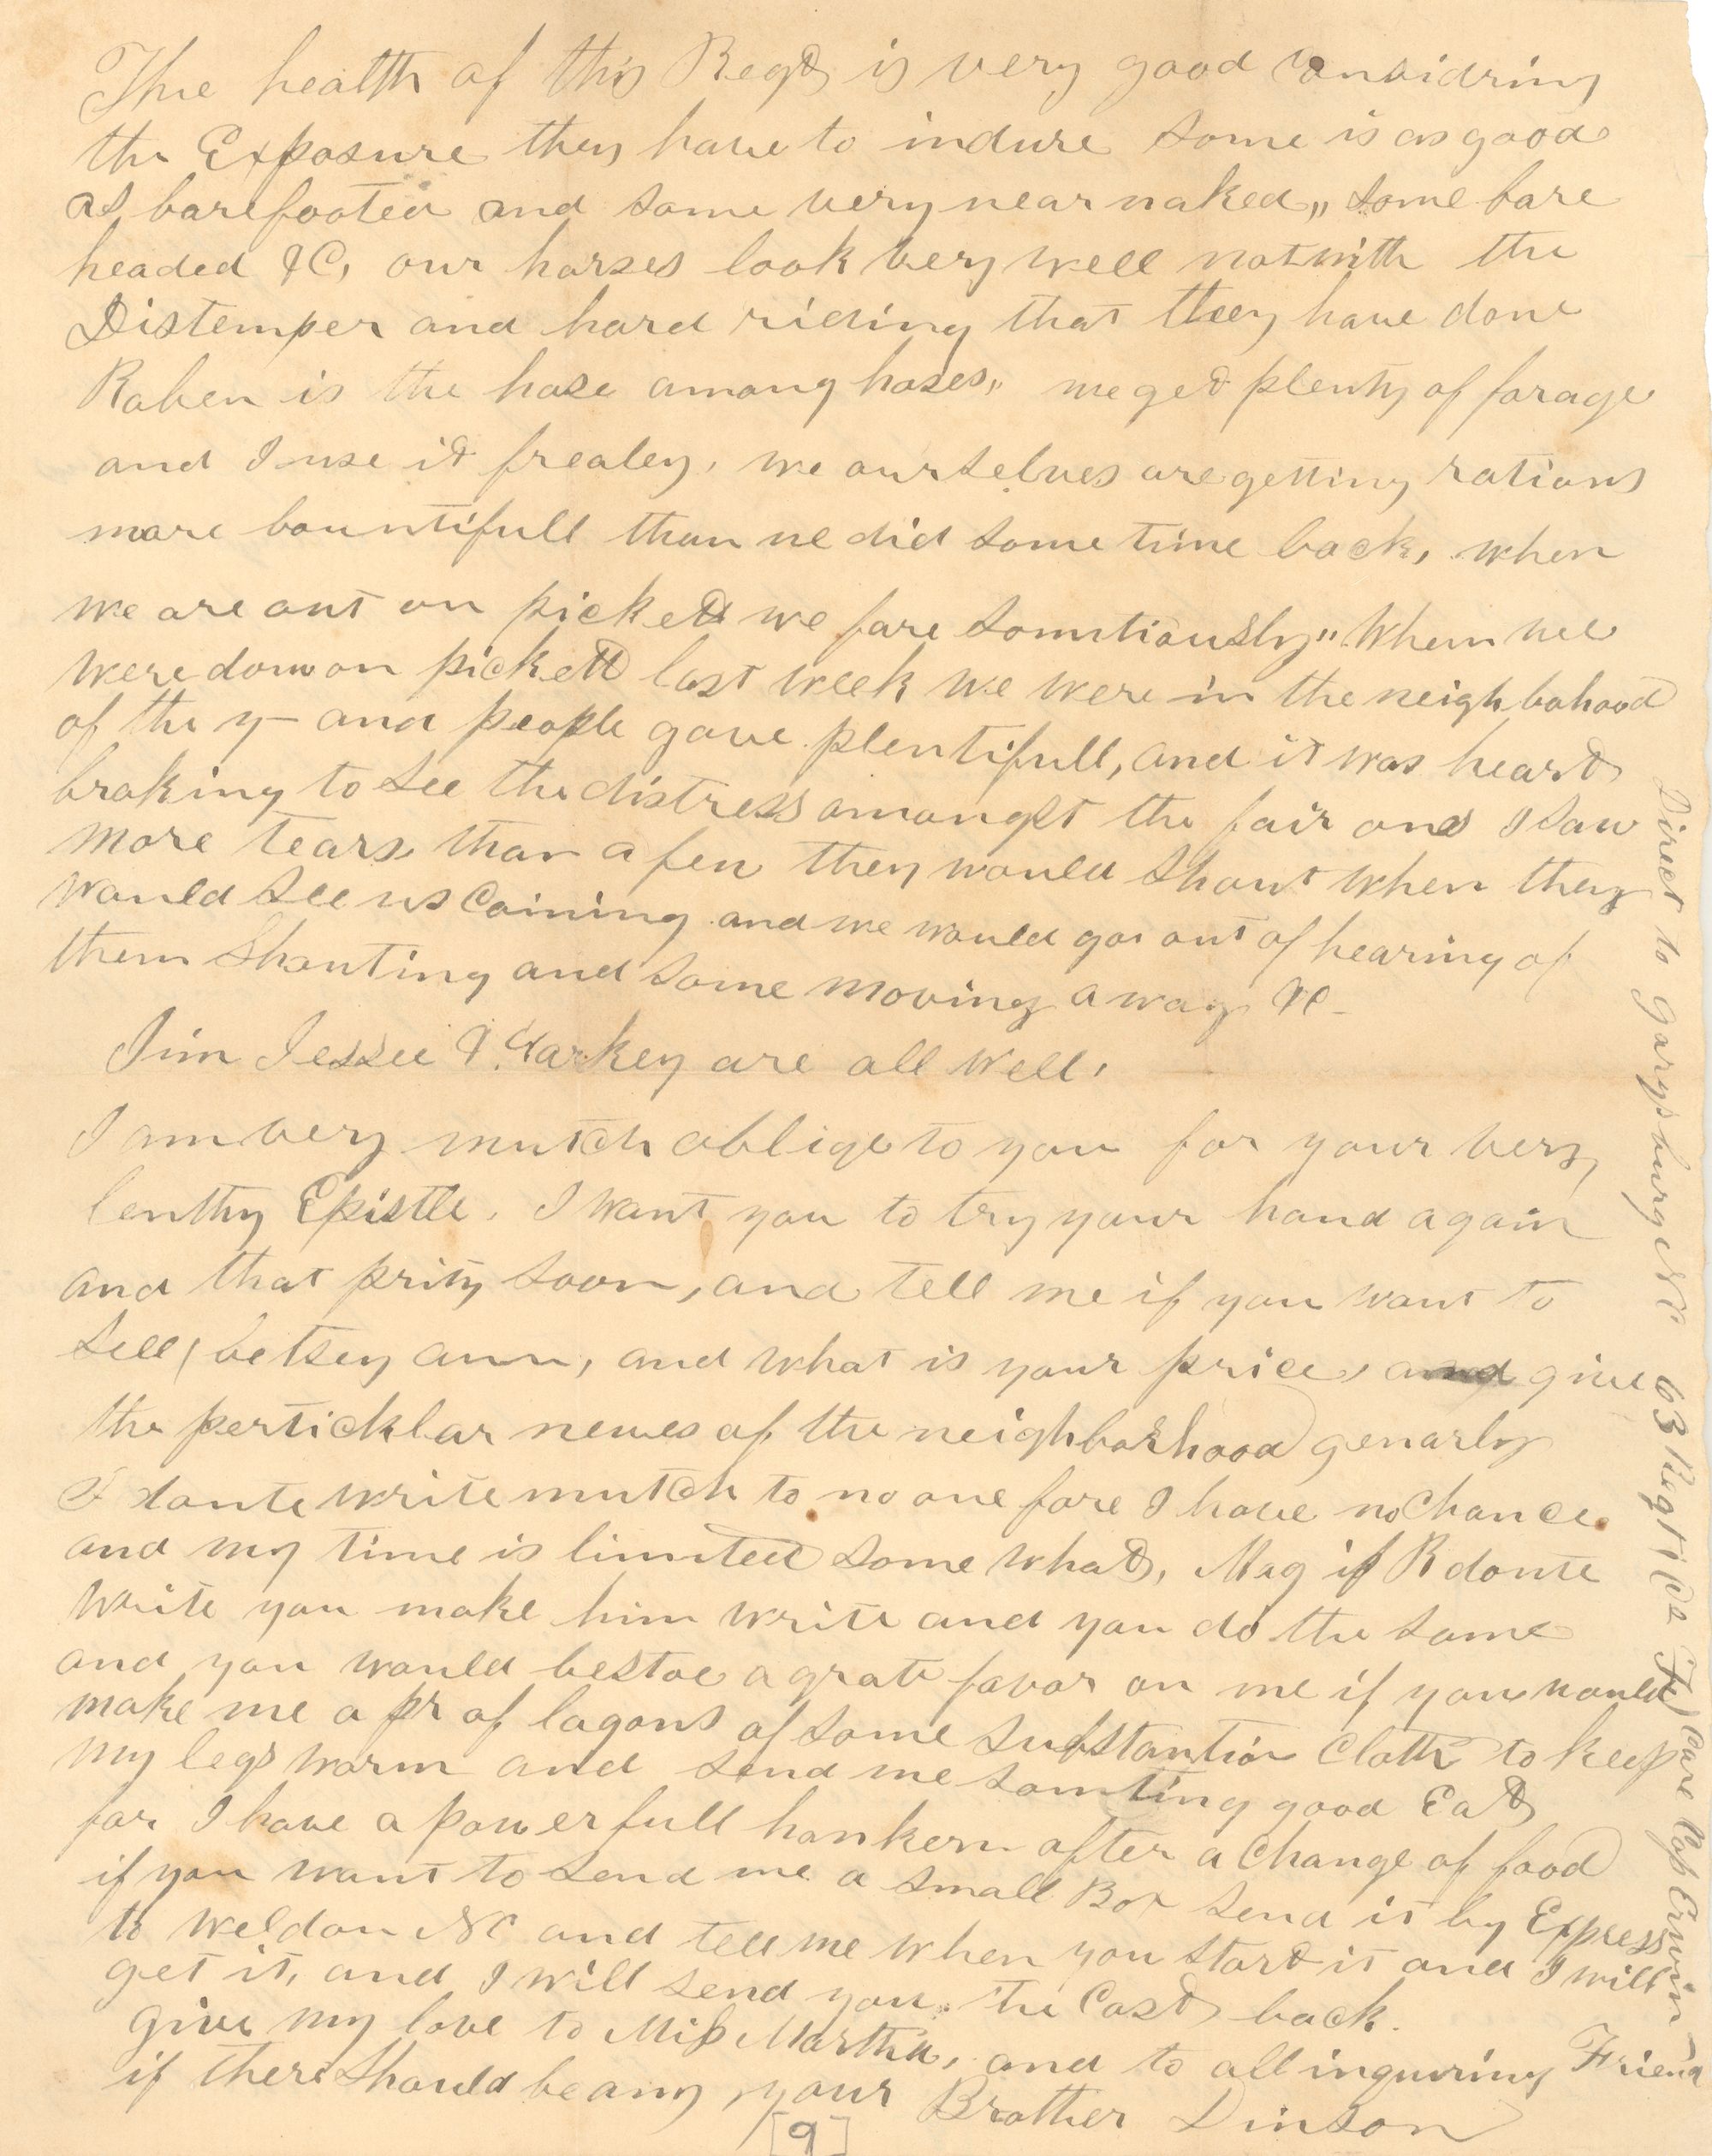 The health of this Regt is very good Considring
the Exposure they have to indure some is as good
as barefooted and some very near naked,, some bare
headed &C, our horses look very well notwith the
Distemper and hard riding that they have done
Roben is the hose among hoses,, we get plenty of forage
and I use it frealey, we ourselves are getting rations
more bountifull than we did some time back, when
we are out on pickett we fare somtiously,, When wee
were down on pickett last week we were in the neighbohood
of the y— and people gave plentifull, and it was heart
braking to see the distress amongst the fair ones I saw
more tears than a few they would shout when they
would see us Coming and we would go out of hearing of
them Shouting and some moving away &C—
Jim Jessee & Harkey are all well,
I am very mutch oblige to you for your very
lenthy Epistle, I want you to try your hand again
and that prity soon, and tell me if you want to
sell, betsey ann, and what is your price, and give
the perticklar newes of the neighborhood genarly
I donte write mutch to no one fore I have no Chance
and my time is limited some what, Mag if R donte
write you make him write and you do the same
and you would bestoe a grate favor on me if you would
make me a pr of lagons of some substantion Cloth to keep
my legs warm and send me somting good Eat
for I have a powerfull hankern after a Change of food
if you want to send me a small Box send it by Express
to weldon NC and tell me when you start it and I will
get it, and I will send you the Cost back.
give my love to Miss Martha, and to all inquiring Friend
if there should be any your Brother Dinson
[9]
Direct to garysburg NC 63 Regt Co F, Care Cap Erwin